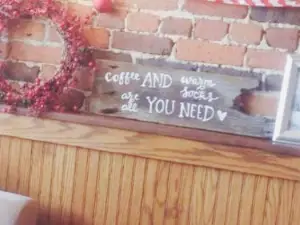 coffee AND warm
are socks
all YOU NEED ♡